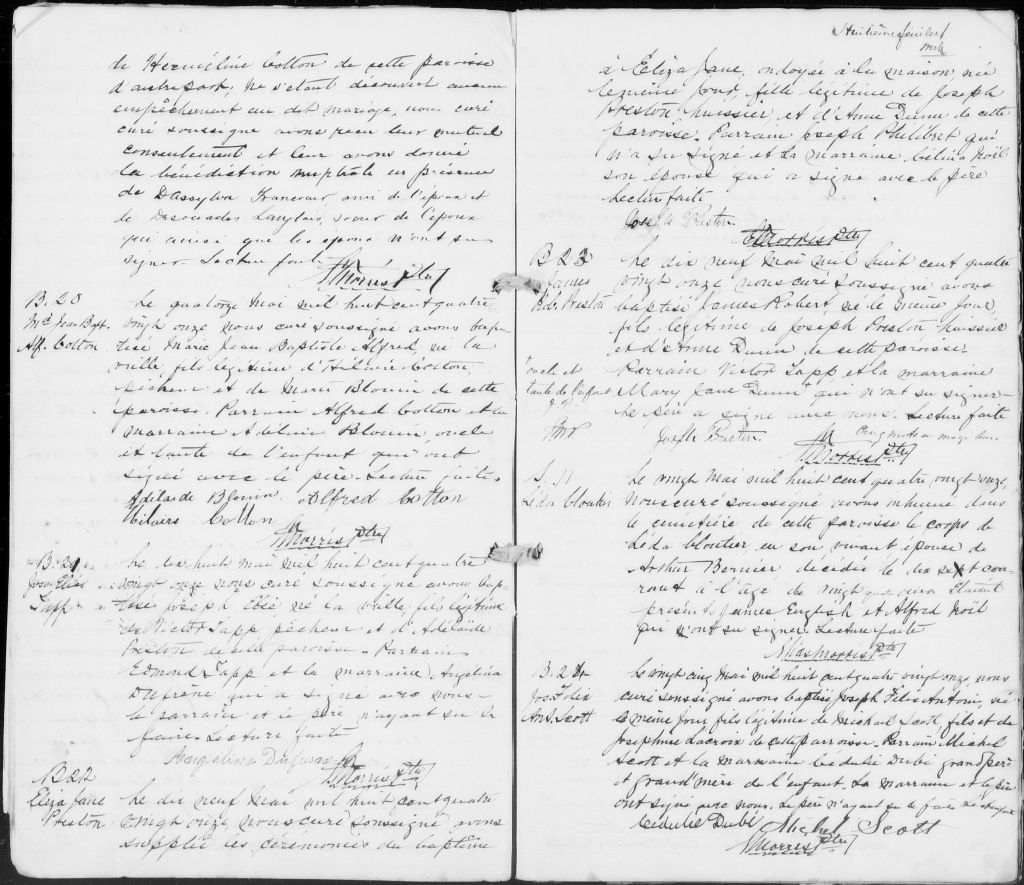 de Herméline Cotton de cette paroisse
d'autre part; Ne s'étant découvert aucun
empêchement au dit mariage, nous curé
curé soussigné avons reçu leur mutuel
consentement et leur avons donné
la bénédiction nuptiale en présence
de Dassylva Francoeur, ami de l'époux et
de Langlais, soeur de l'époux
qui ainsi que les époux n'ont su
signer. Lecture faite
Morris Ptre
B. 20
Mie Jean Bapt.
Alf. Cotton
Le quatorze mai mil huit cent quatre
vingt onze nous curé soussigné avons bap-
tisé Marie Jean Baptiste Alfred, né la
veille, fils légitime d'Hilaire Cotton,
pêcheur et de Marie Blouin de cette
paroisse. Parrain Alfred Cotton et la
marraine Adelaide Blouin, oncle
et tante de l'enfant qui ont
signé avec le père. Lecture faite.
Adelaide Blouin. Alfred Cotton
Hilaire Cotton
Morris Ptre
B. 21
Joseph Elie
Tapp
Le dix huit mai mil huit cent quatre
vingt onze nous curé soussigné avons bap-
tisé Joseph Elie né la veille, fils légitime
de Tapp pêcheur et d'Adelaïde
Preston de cette paroisse. Parrain
Edmond Tapp et la marraine Angelina
Dufresne qui a signé avec nous.
le parrain et le père n'ayant su le
faire. Lecture faite
Angelina Dufresne
Morris Ptre
B 22
Eliza Jane
Preston
Le dix neuf Mai mil huit cent quatre
vingt onze, nous curé soussigné avons
supplée les cérémonies du baptême
Huitième feuillet
à Eliza Jane, ondoyée à la maison, née
le même jour, fille légitime de Joseph
Preston, huissier, et d'Anne Dunn de cette
paroisse. Parrain Joseph Philibert qui
n'a su signé et la marraine Célina Noël
son épouse qui a signé avec le père
Lecture faite
Joseph Preston
Morris Ptre
B 23
James
Rob. Preston
Le dix neuf Mai mil huit cent quatre
vingt onze, nous curé soussigné avons
baptisé James Robert, né le même jour,
fils légitime de Joseph Preston huissier
et d'Anne Dunn de cette paroisse.
Parrain Victor Tapp, et la marraine
Mary Jane Dunn qui n'ont su signer.
Le père a signé avec nous. Lecture faite
+ oncle et
tante de l'enfant
J. P.
Joseph Preston.
Cinq mots en marge bons.
Morris Ptre
S. 11
Léda Cloutier
Le vingt Mai mil huit cent quatre vingt onze,
Nous curé soussigné avons inhumé dans
le cimetière de cette paroisse le corps de
Léda Cloutier, en son vivant épouse de
Arthur Bernier décédée le dix sept cou-
rant à l'âge de vingt quatre ans. Etaient
présents James English et Alfred Noël
qui n'ont su signer. Lecture faite
Morris Ptre
B. 24
Jos. Felix
Ant. Scott
Le vingt cinq Mai mil huit cent quatre vingt onze nous
curé soussigné avons baptisé Joseph Felix Antoine, né
le même jour, fils légitime de Michael Scott fils et de
Josephine Lacroix de cette parroisse. Parrain Michel
Scott et la Marraine Cédulie Dubé grand père
et grand'mère de l'enfant. La marraine et le père
ont signé avec nous. Le père n'ayant su le faire
Cédulie Dubé Michel Scott
Morris Ptre